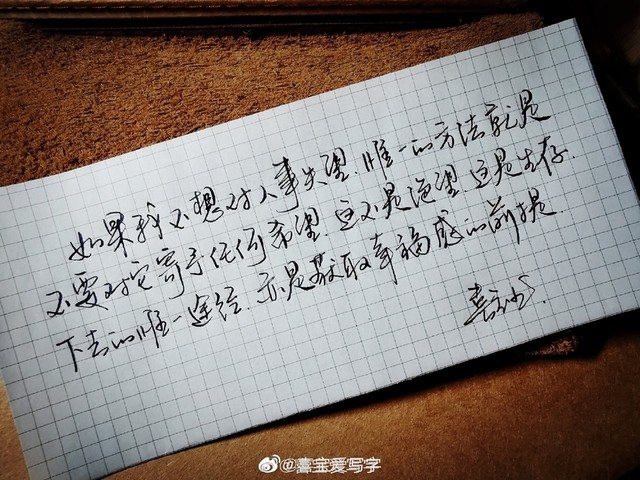 如果我不想对人事失望.惟一的方法就是
不要对它寄予任何希望.这不是绝望.这是生存
下去的惟一途径.亦是获取幸福感的前提.
喜宝书.
@喜宝爱写字